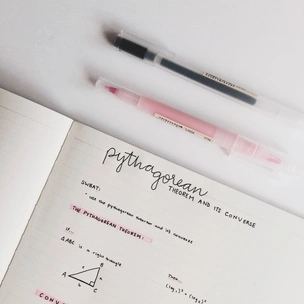 pythagorean
THEOREM AND ITS CONVERSE
SWBAT:
• use the pythagorean theorem and its converse
THE PYTHAGOREAN THEOREM:
If...
△ABC is a right triangle
Then...
B
c
a
A
b
C